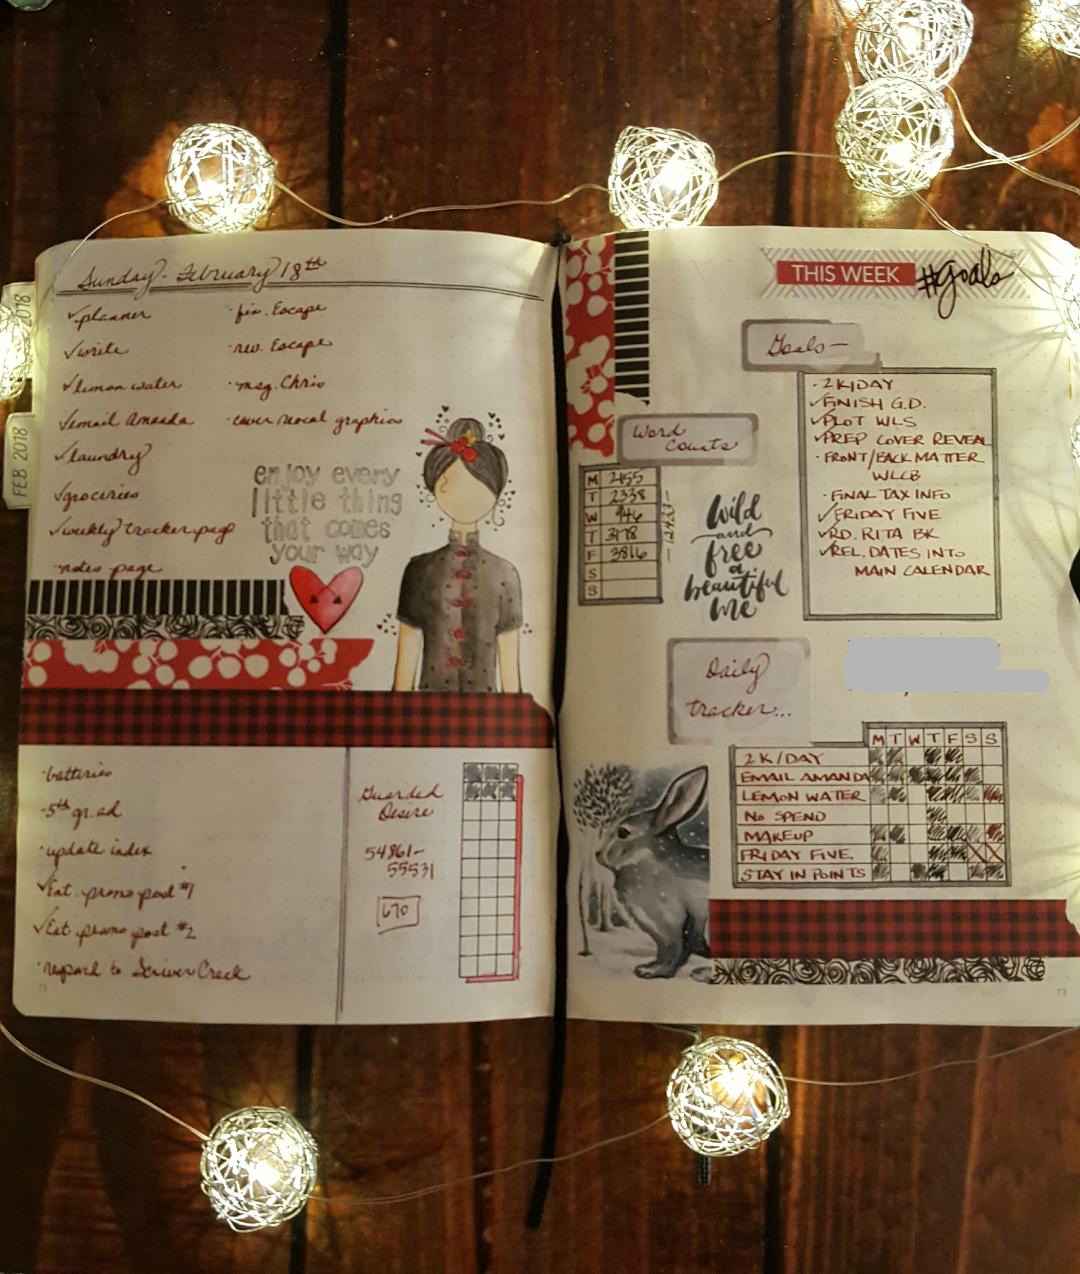 Sunday - February 18th
✓planner
✓write
✓lemon water
✓email Amanda
✓laundry
✓groceries
✓weekly tracker page
·notes page
·fin. Escape
·rev. Escape
·msg. Chris
·cover reveal graphics
2018
FEB 2018
enjoy every
little thing
that comes
your way
·batteries
·5th gr. ad
·update index
✓Est. promo post #1
✓Est promo post #2
·respond to Scriver Creek
Guarded
Desire
54861-
55531
670
THIS WEEK #goals
Goals-
·2K/DAY
✓FINISH G.D.
✓PLOT WLS
✓PREP COVER REVEAL
·FRONT/BACK MATTER
WLCB
·FINAL TAX INFO
✓FRIDAY FIVE
✓RD. RITA BK
✓REL. DATES INTO
MAIN CALENDAR
Word
Counts
M 2455
T 2338
W 946
T 3178
F 3816
S
S
wild
and
free
a
beautiful
me
Daily
tracker...
M T W T F S S
2K/DAY
EMAIL AMANDA
LEMON WATER
NO SPEND
MAKEUP
FRIDAY FIVE
STAY IN POINTS
73